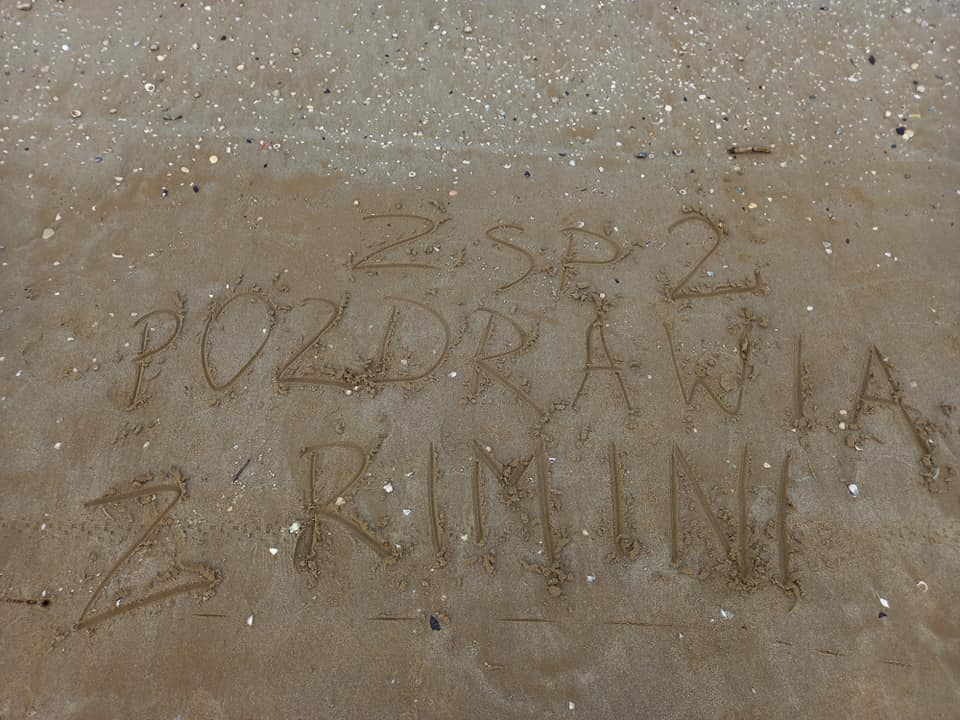 ZSP 2
POZDRAWIA
Z RIMINI